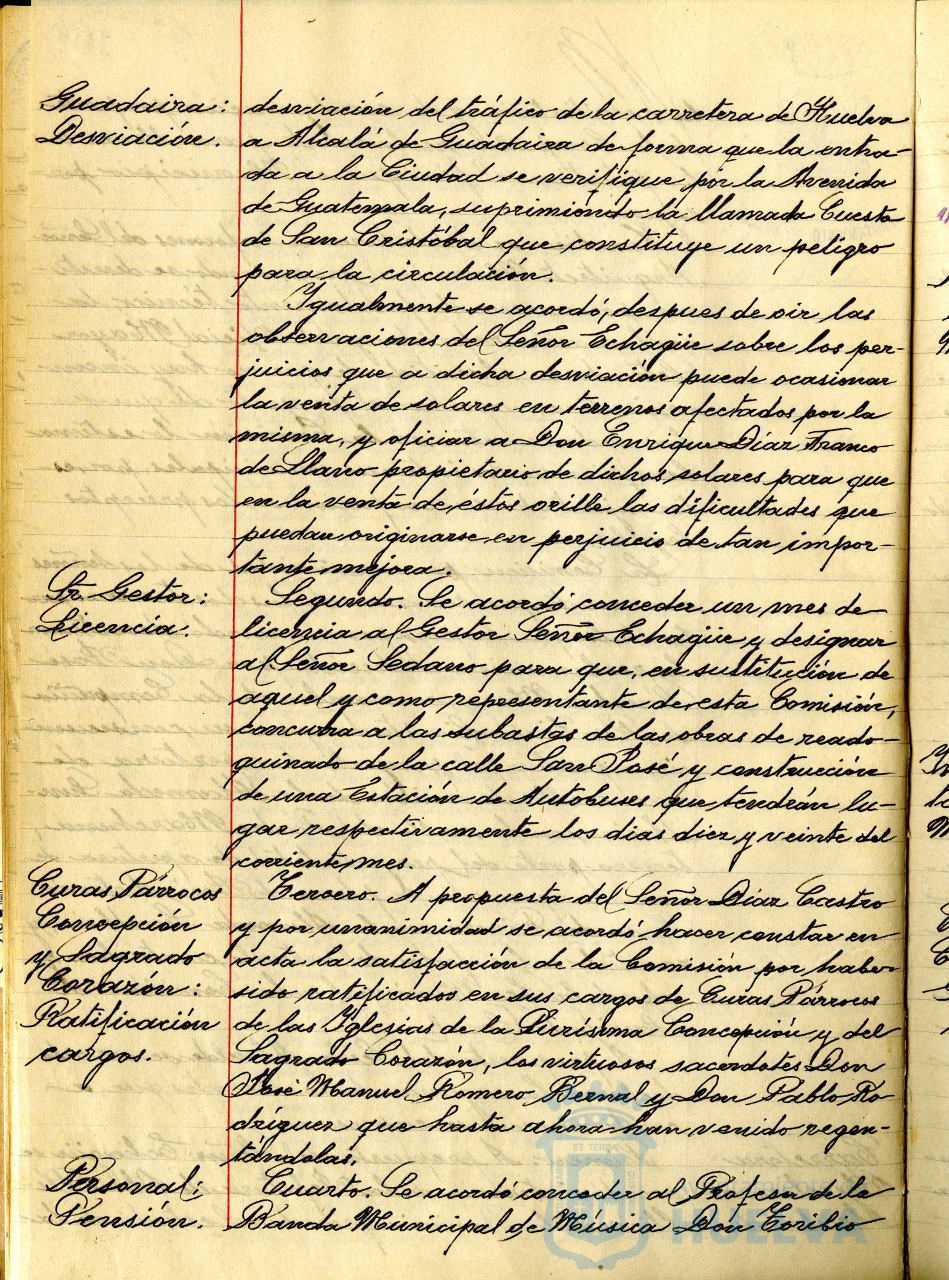 Guadaira:
Desviación.
desviación del tráfico de la carretera de Huelva
a Alcalá de Guadaira de forma que la entra-
da a la Ciudad se verifique por la Avenida
de Guatemala, suprimiendo la llamada Cuesta
de San Cristóbal que constituye un peligro
para la circulación.
Igualmente se acordó, despues de oir las
observaciones del Señor Echagüe sobre los per-
juicios que a dicha desviación puede ocasionar
la venta de solares en terrenos afectados por la
misma, y oficiar a Don Enrique Díaz Franco
de Llano propietario de dichos solares para que
en la venta de éstos orille las dificultades que
puedan originarse en perjuicio de tan impor-
tante mejora.
Sr. Gestor:
Licencia.
Segundo. Se acordó conceder un mes de
licencia al Gestor Señor Echagüe y designar
al Señor Sedano para que, en sustitución de
aquel y como representante de esta Comisión,
concurra a las subastas de las obras de reado-
quinado de la calle San José y construcción
de una Estación de Autobuses que tendrán lu-
gar respectivamente los dias diez y veinte del
corriente mes.
Curas Párrocos
Concepción
y Sagrado
Corazón:
Ratificación
cargos.
Tercero. A propuesta del Señor Díaz Castro
y por unanimidad se acordó hacer constar en
acta la satisfacción de la Comisión por haber
sido ratificados en sus cargos de Curas Párrocos
de las Iglesias de la Purísima Concepción y del
Sagrado Corazón, los virtuosos sacerdotes Don
José Manuel Romero Bernal y Don Pablo Ro
dríguez que hasta ahora han venido regen-
tándolas.
Personal:
Pensión.
Cuarto. Se acordó conceder al Profesor de la
Banda Municipal de Música Don Toribio
HUELVA